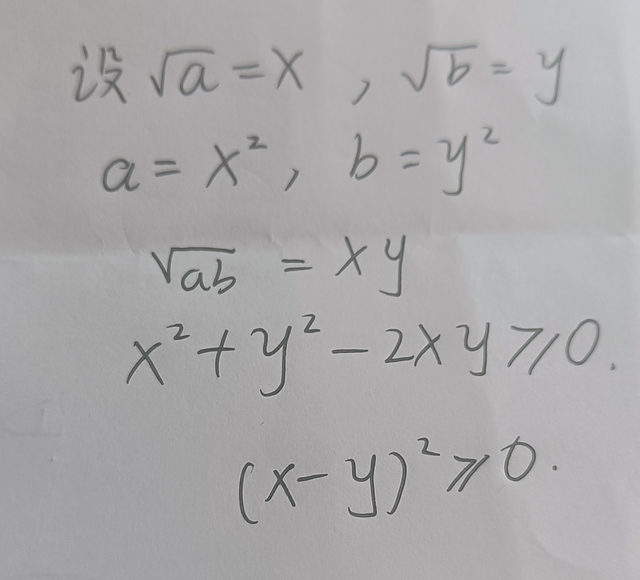 设 √a = x , √b = y
a = x² , b = y²
√ab = xy
x² + y² - 2xy ⩾ 0.
(x - y)² ⩾ 0.